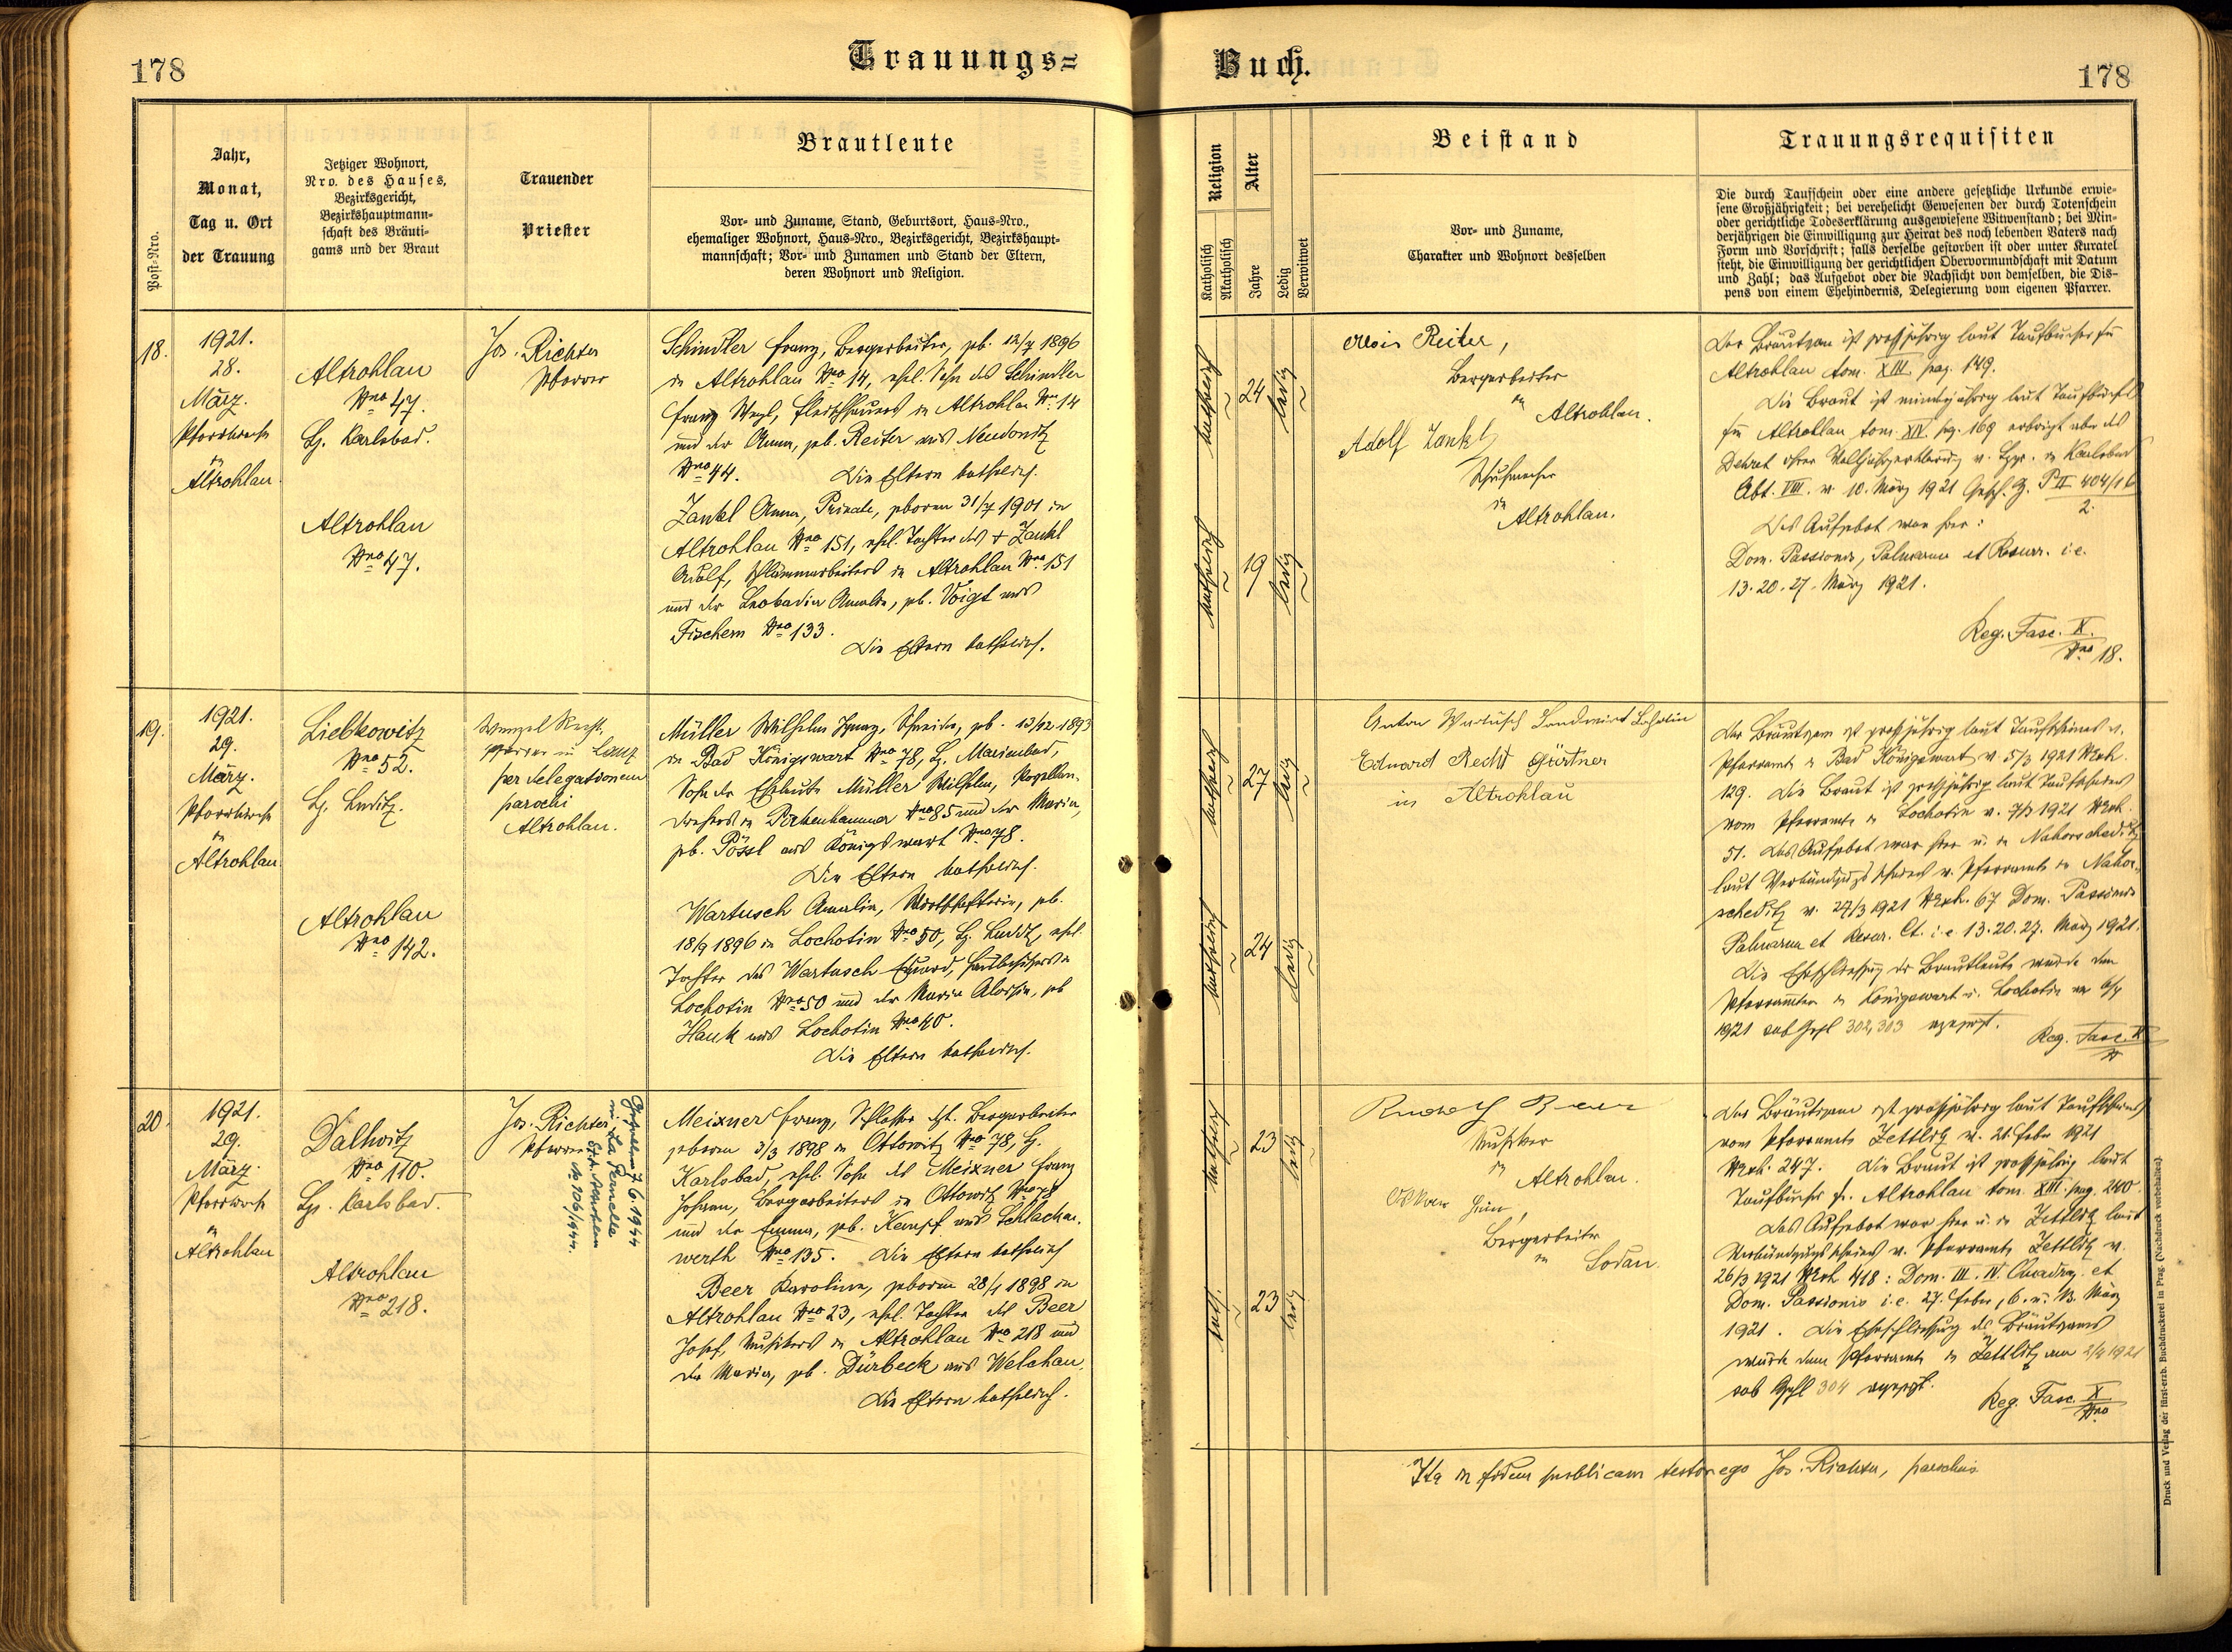 178
Trauungs=
Buch.
178
Post=Nro.
Jahr,
Monat,
Tag u. Ort
der Trauung
Jetziger Wohnort,
Nro. des Hauses,
Bezirksgericht,
Bezirkshauptmann-
schaft des Bräuti-
gams und der Braut
Trauender
Priester
Brautleute
Vor= und Zuname, Stand, Geburtsort, Haus=Nro.,
ehemaliger Wohnort, Haus=Nro., Bezirksgericht, Bezirkshaupt-
mannschaft; Vor= und Zunamen und Stand der Eltern,
deren Wohnort und Religion.
Religion
Katholisch
Akatholisch
Alter
Jahre
Ledig
Verwitwet
Beistand
Vor= und Zuname,
Charakter und Wohnort desselben
Trauungsrequisiten
Die durch Taufschein oder eine andere gesetzliche Urkunde erwie-
sene Großjährigkeit; bei verehelicht Gewesenen der durch Totenschein
oder gerichtliche Todeserklärung ausgewiesene Witwenstand; bei Min-
derjährigen die Einwilligung zur Heirat des noch lebenden Vaters nach
Form und Vorschrift; falls derselbe gestorben ist oder unter Kuratel
steht, die Einwilligung der gerichtlichen Obervormundschaft mit Datum
und Zahl; das Aufgebot oder die Nachsicht von demselben, die Dis-
pens von einem Ehehindernis, Delegierung vom eigenen Pfarrer.
18.
1921.
28.
März.
Pfarrkirche
in
Altrohlau.
Altrohlau
Nro 47.
Bz. Karlsbad.
Altrohlau
Nro 47.
Jos. Richter
Pfarrer
Schindler Franz, Bergarbeiter, geb. 12/7 1896
in Altrohlau Nro 14, ehel. Sohn des Schindler
Franz, Fleischhauers in Altrohlau Nro 14
und der Anna, geb. Reiter aus Neudonitz
Nro 44. Die Eltern katholisch.
Zankl Anna, Private, geboren 31/7 1901 in
Altrohlau Nro 151, ehel. Tochter des + Zankl
Adolf, Schlämmarbeiters in Altrohlau Nro 151
und der Leokadia Amalia, geb. Voigt aus
Fischern Nro 133.
Die Eltern katholisch.
katholisch
24
ledig
katholisch
19
ledig
Alois Reiter,
Bergarbeiter
in
Altrohlau.
Adolf Zankl
Schuhmacher
in
Altrohlau.
Der Bräutigam ist großjährig laut Taufbuches für
Altrohlau tom. XIII. pag. 149.
Die Braut ist minderjährig laut Taufbuches
für Altrohlau tom. XIV. pg. 169 erbringt aber das
Dekret ihrer Volljährigerklärung v. Bzgr. in Karlsbad
Abt. VIII. v. 10. März 1921 Gesch. Z. P II 404/16
2.
Das Aufgebot war hier:
Dom. Passionis, Palmarum et Resurr. i.e.
13. 20. 27. März 1921.
Reg. Fasc. X.
Nro 18.
19.
1921.
29.
März.
Pfarrkirche
in
Altrohlau
Liebkowitz
Nro 52.
Bz. Luditz.
Altrohlau
Nro 142.
Wenzel
Pfarrer in
per delegationem
parochi
Altrohlau.
Müller Wilhelm Ignaz, Schneider, geb. 13/12 1893
in Bad Königswart Nro 78, Bz. Marienbad,
Sohn der Eheleute Müller Wilhelm, Porzellan-
drehers in Pirkenhammer Nro 85 und der Maria,
geb. Pössl aus Königswart Nro 78.
Die Eltern katholisch.
Wartusch Amalia, Wirtschafterin, geb.
18/9 1896 in Lochotin Nro 50, Bz. Luditz, ehel.
Tochter des Wartusch Eduard, Hausbesitzers in
Lochotin Nro 50 und der Maria Aloisia, geb.
Hauk aus Lochotin Nro 40.
Die Eltern katholisch.
katholisch
27
ledig
katholisch
24
ledig
Anton Wartusch Landwirt Lochotin
Eduard Recht Gärtner
in Altrohlau
Der Bräutigam ist großjährig laut Taufscheines v.
Pfarramte in Bad Königswart v. 5/3 1921 NExh.
129. Die Braut ist großjährig laut Taufscheines
vom Pfarramte in Lochotin v. 7/3 1921 NExh.
51. Das Aufgebot war hier u. in Nahorscheditz
laut Verkündigungsscheines v. Pfarramte in Nahor-
scheditz v. 27/3 1921 NExh. 67 Dom. Passionis
Palmarum et Resur. Ct. i.e 13. 20. 27. März 1921.
Die Eheschließung der Brautleute wurde den
Pfarrämtern in Königswart u. Lochotin am 6/4
1921 sub Gzhl 302, 303 angezeigt.
Reg. Fasc. X
20.
1921.
29.
März.
Pfarrkirche
in
Altrohlau
Dallwitz
Nro 110.
Bz. Karlsbad.
Altrohlau
Nro 218.
Jos. Richter
Pfarrer
Gefallen 7/6. 1944
in La Pernelle
St.A.
No 106/1944.
Meixner Franz, Schlosser dzt. Bergarbeiter
geboren 3/3 1898 in Ottowitz Nro 78, Bz.
Karlsbad, ehel. Sohn des Meixner Franz
Johann, Bergarbeiters in Ottowitz Nro 78
und der Emma, geb. Kempf aus Schlacken-
werth Nro 135. Die Eltern katholisch
Beer Karolina, geboren 28/1 1898 in
Altrohlau Nro 23, ehel. Tochter des Beer
Josef, Musikers in Altrohlau Nro 218 und
der Maria, geb. Dürbeck aus Welchau.
Die Eltern katholisch.
katholisch
23
ledig
kath.
23
ledig
Rudolf Beer
Musiker
in
Altrohlau.
Oskar
Bergarbeiter
in
Sodau.
Der Bräutigam ist großjährig laut Taufscheines
vom Pfarramte Zettlitz v. 21. Feber 1921
NExh. 247. Die Braut ist großjährig laut
Taufbuches f. Altrohlau tom. XIII. pag. 240.
Das Aufgebot war hier u. in Zettlitz laut
Verkündigungsscheines v. Pfarramte Zettlitz v.
26/3 1921 NExh 418: Dom. III. IV. Quadrag. et
Dom. Passionis i.e. 27. Feber, 6. u. 13. März
1921. Die Eheschließung des Bräutigams
wurde dem Pfarramte in Zettlitz am 2/4 1921
sub Gzhl 304 angezeigt.
Reg. Fasc. X
Nro
Ita in fidem publicam testor ego Jos. Richter, parochus
Druck und Verlag der fürst-erzb. Buchdruckerei in Prag. (Nachdruck vorbehalten).